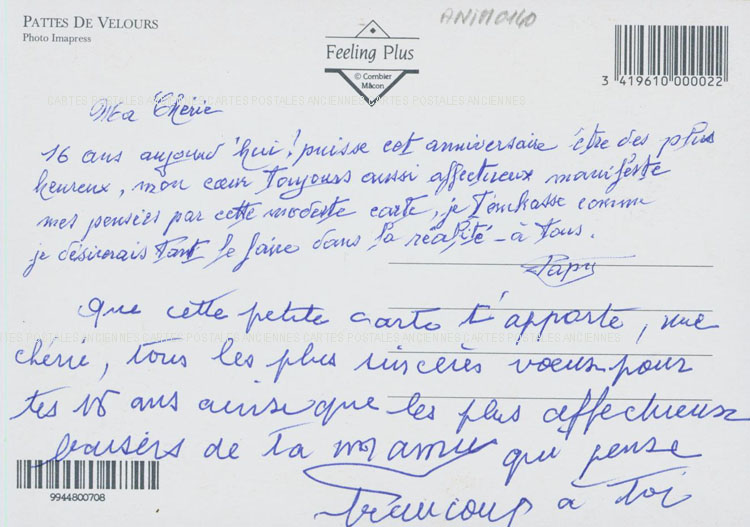 PATTES DE VELOURS
Photo Imapress
ANIM0140
Feeling Plus
© Combier
Mâcon
3 419610 000022
CARTES POSTALES ANCIENNES CARTES POSTALES ANCIENNES CARTES POSTALES ANCIENNES
Ma Chérie
16 ans aujourd'hui! puisse cet anniversaire être des plus
heureux, mon cœur toujours aussi affectueux manifeste
mes pensées par cette modeste carte, je t'embrasse comme
je désirerais tant le faire dans la réalité - à tous.
Papy
Que cette petite carte t'apporte, ma
chérie, tous les plus sincères voeux pour
tes 16 ans ainsi que les plus affectueux
baisers de ta mamie qui pense
beaucoup à toi
9944800708